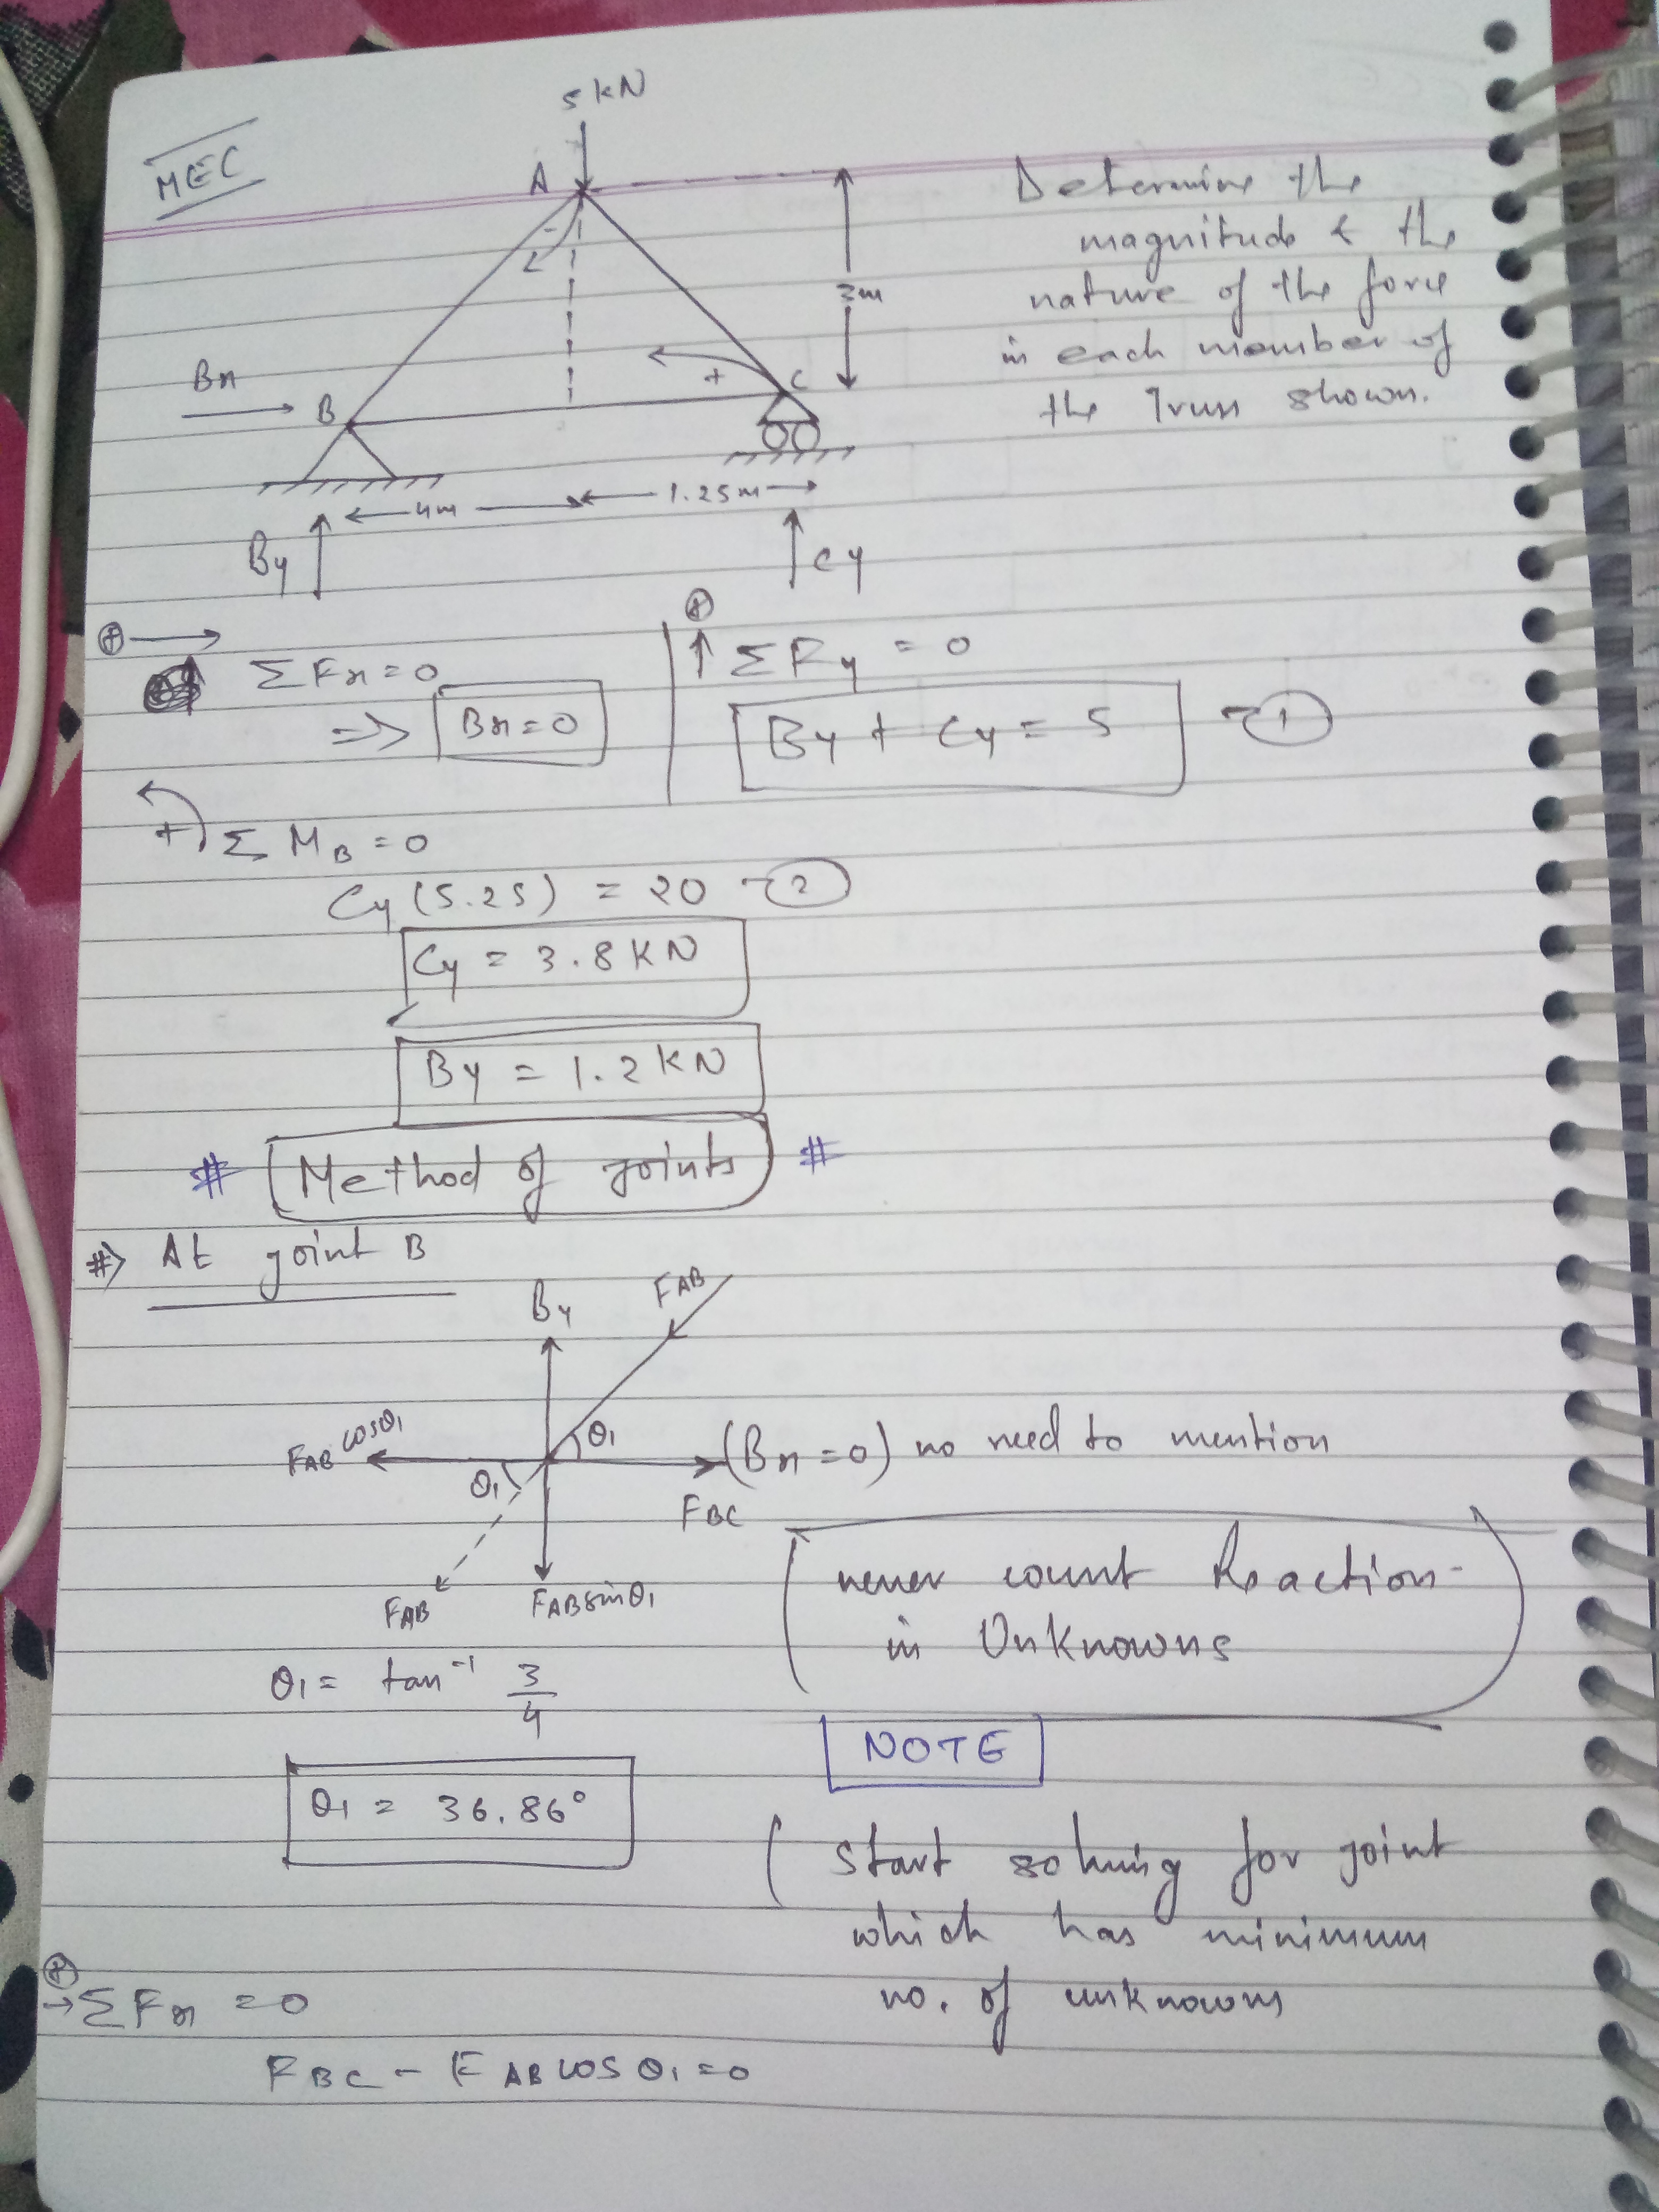 MEC
5 kN
A
Determine the
magnitude & the
nature of the force
in each member of
the Truss shown.
-
3m
+
C
Bx
B
4m
1.25m
By
Cy
⊕ →
ΣFx = 0
⇒ Bx = 0
⊕
↑ ΣFy = 0
By + Cy = 5 - ①
+ Σ MB = 0
Cy (5.25) = 20 - ②
Cy = 3.8 KN
By = 1.2 KN
# Method of joints #
#> At joint B
By
FAB
FAB cosθ1
θ1
θ1
(Bx = 0) no need to mention
FBC
FAB
FAB sinθ1
never count Reaction
in Unknowns
θ1 = tan⁻¹ 3/4
NOTE
θ1 = 36.86°
( Start solving for joint
which has minimum
no. of unknowns
⊕
→ ΣFx = 0
FBC - FAB cos θ1 = 0